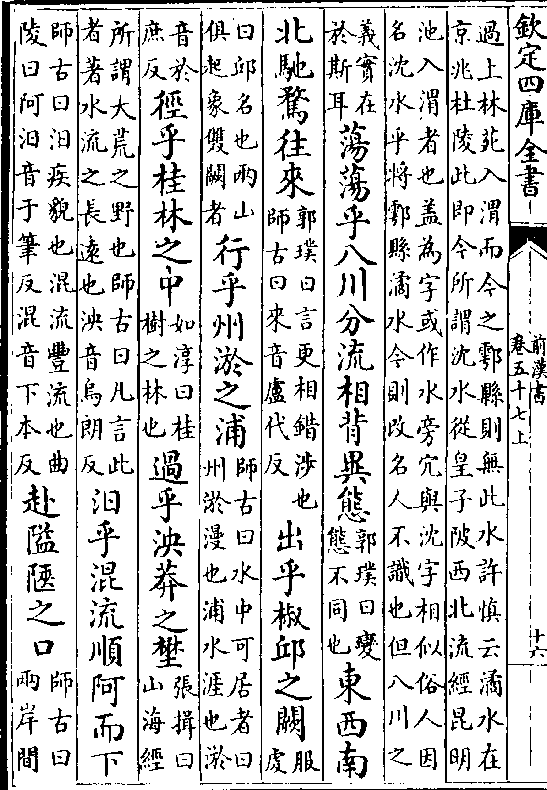 欽定四庫全書
前漢書
卷五十七上
十六
過上林苑入渭而今之鄠縣則無此水許慎云潏水在
京兆杜陵此即今所謂沈水從皇子陂西北流經昆明
池入渭者也蓋為字或作水旁穴與沈字相似俗人因
名沈水乎將鄠縣潏水今則改名人不識也但八川之
義實在
於斯耳
蕩蕩乎八川分流相背異態
郭璞曰變
態不同也
東西南
北馳騖往來
郭璞曰言更相錯涉也
師古曰來音盧代反
出乎椒邱之闕
服
虔
曰邱名也兩山
俱起象雙闕者
行乎州淤之浦
師古曰水中可居者曰
州淤漫也浦水涯也淤
音於
庶反
徑乎桂林之中
如淳曰桂
樹之林也
過乎泱莽之壄
張揖曰
山海經
所謂大荒之野也師古曰凡言此
者著水流之長遠也泱音烏朗反
汩乎混流順阿而下
師古曰汩疾貌也混流豐流也曲
陵曰阿汩音于筆反混音下本反
赴隘陿之口
師古曰
兩岸間